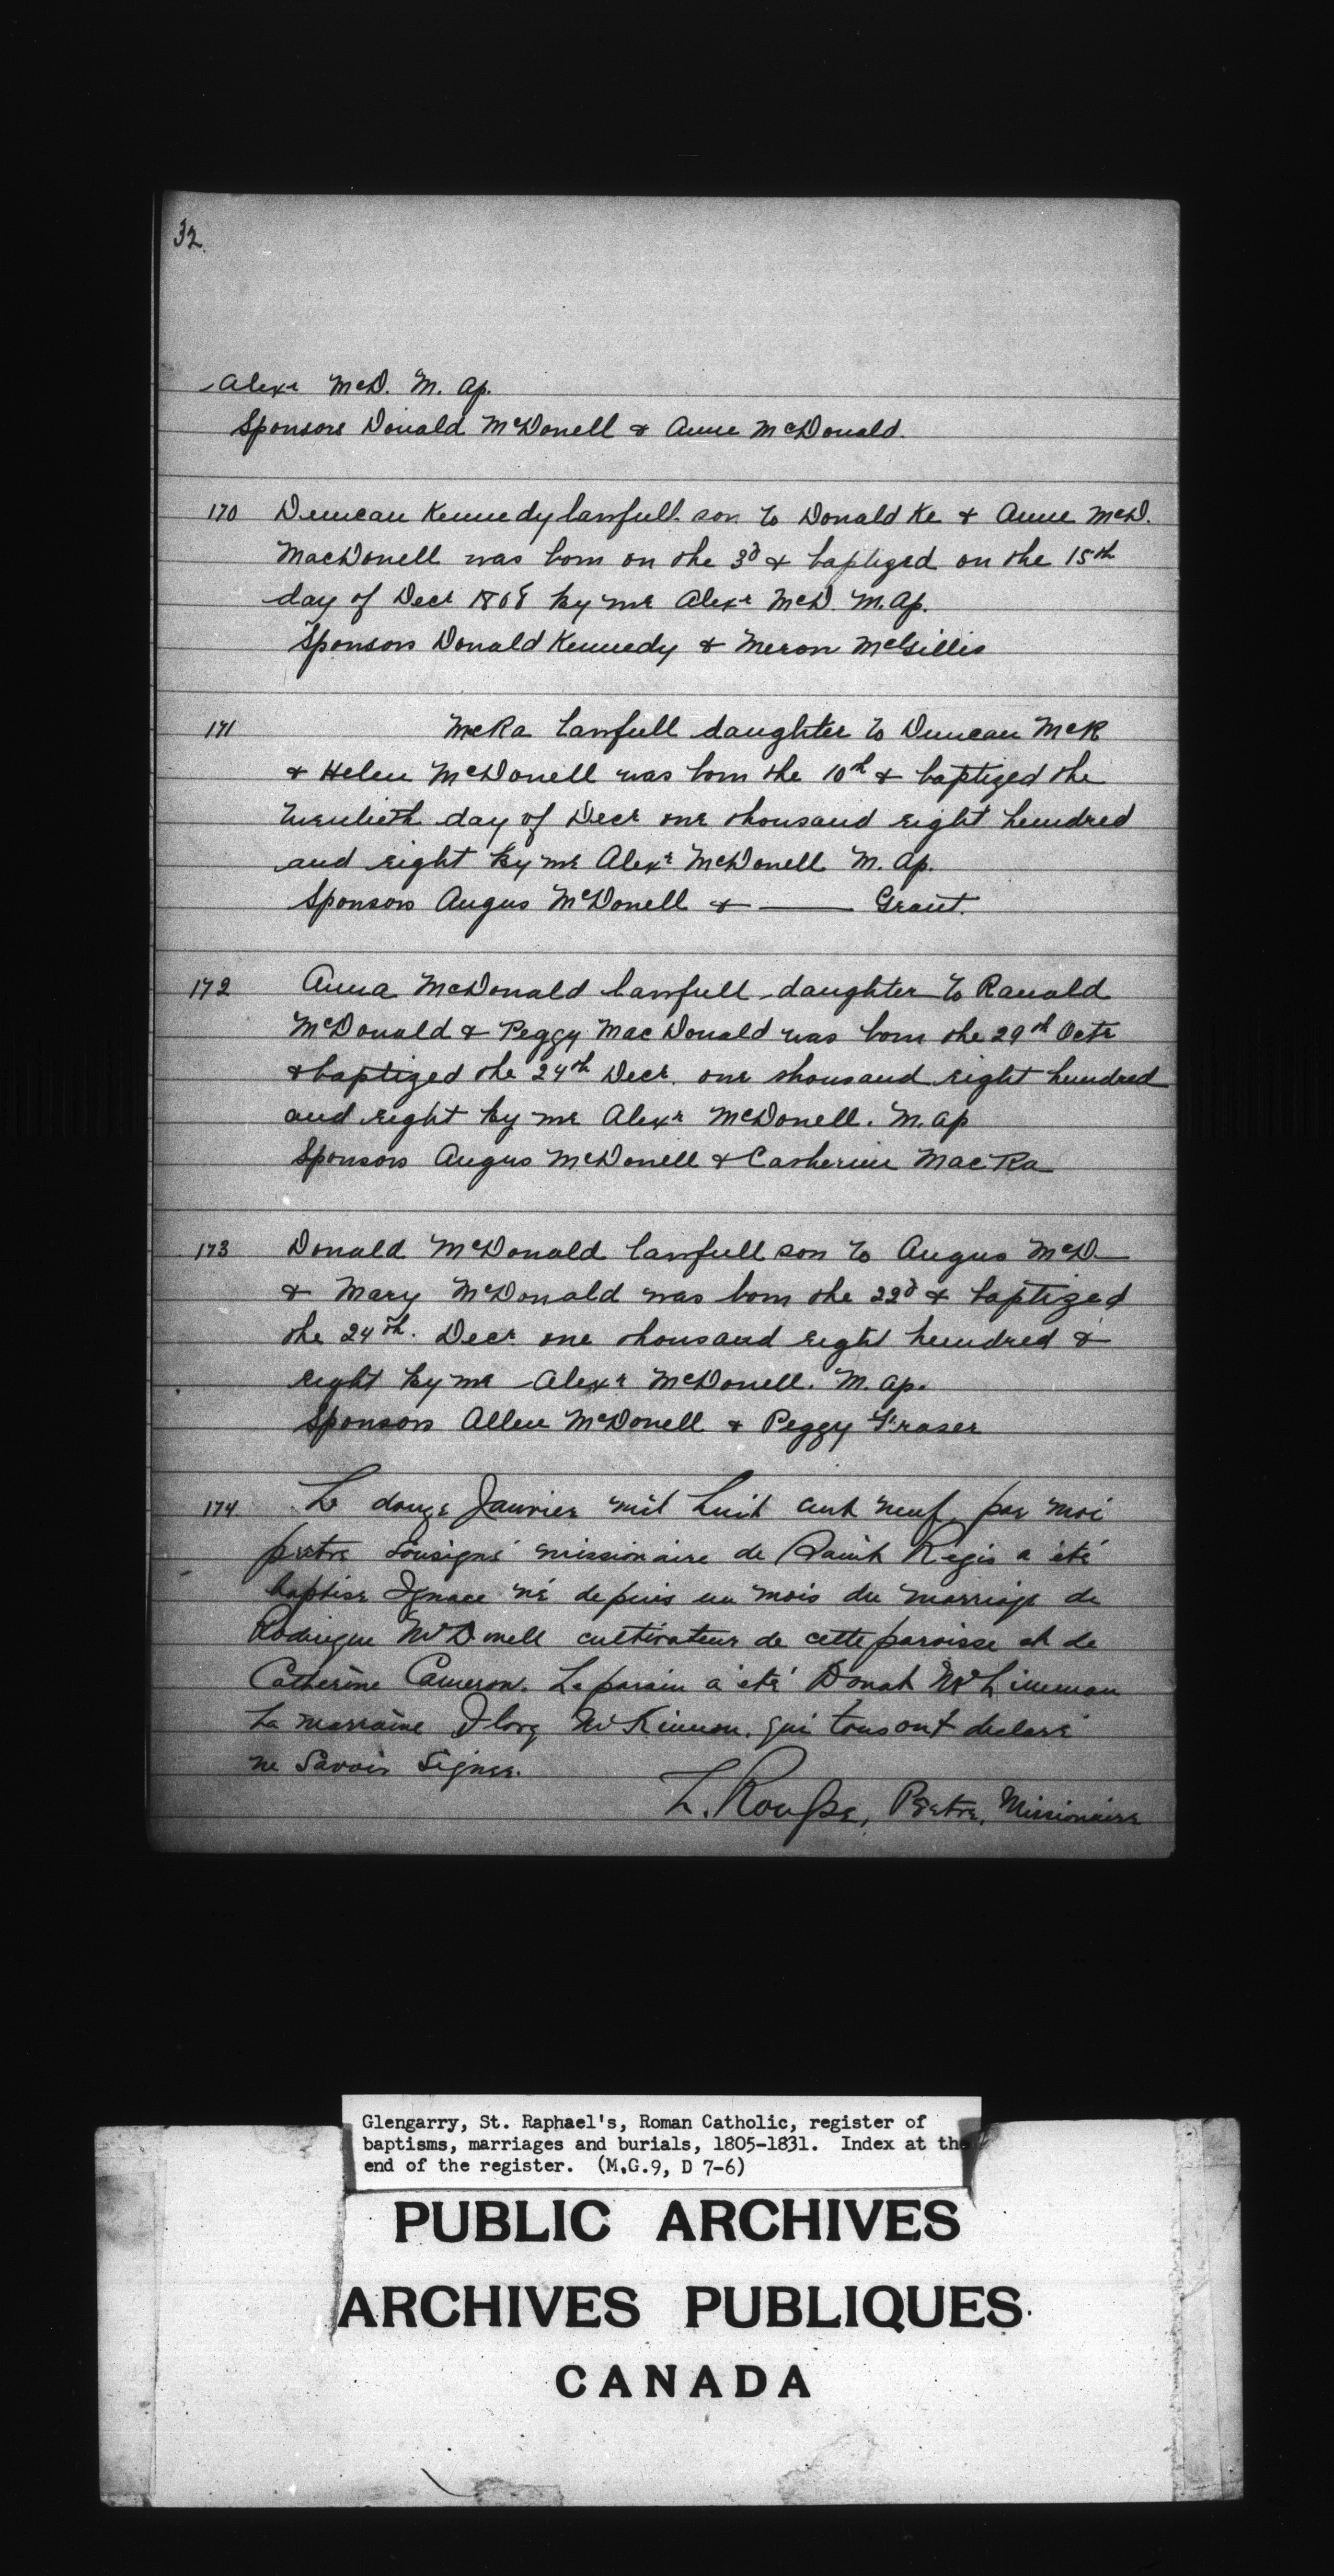 32.
Alexr McD. M. Ap.
Sponsors Donald McDonell & Anne McDonald.
170 Duncan Kennedy lawfull son to Donald Ke & Anne McD.
MacDonell was born on the 3d & baptized on the 15th
day of Decr 1808 by me Alexr McD. M. Ap.
Sponsors Donald Kennedy & Meron McGillis
171 McRa lawfull daughter to Duncan McR
& Helen McDonell was born the 10th & baptized the
twentieth day of Decr one thousand eight hundred
and eight by me Alexr McDonell M. Ap.
Sponsors Angus McDonell & —— Grant.
172 Anna McDonald lawfull daughter to Ranald
McDonald & Peggy MacDonald was born the 29th Octr
& baptized the 24th Decr. one thousand eight hundred
and eight by me Alexr McDonell. M. Ap
Sponsors Angus McDonell & Catherine MacRa
173 Donald McDonald lawfull son to Angus McD—
& Mary McDonald was born the 22d & baptized
the 24th. Decr one thousand eight hundred &
eight by me Alexr McDonell. M. Ap.
Sponsors Allen McDonell & Peggy Fraser
174. Le douze Janvier mil huit cent neuf, par moi
prêtre sousigné missionaire de Saint Regis a été
baptise Ignace né depuis un mois du marriage de
Rodrigue McDonell cultivateur de cette paroisse et de
Catherine Cameron. Le parain a été Donat
La marraine McKinnon. qui tous ont declaré
ne Savoir Signer.
L. Roupe, Prêtre, Missionaire
Glengarry, St. Raphael's, Roman Catholic, register of
baptisms, marriages and burials, 1805-1831. Index at the
end of the register. (M.G.9, D 7-6)
PUBLIC ARCHIVES
ARCHIVES PUBLIQUES
CANADA